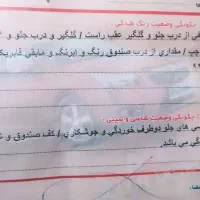 چگونگی وضعیت رنگ
فی از درب جلو و گلگیر عقب راست / گلگیر و درب جلو و
چپ / مقداری از درب صندوق رنگ و ایرنگ و مابقی فابریک
چگونگی وضعیت شاسی و سینی :
سی های جلو دوطرف خوردگی و جوشکاری / کف صندوق و
گی می باشد.